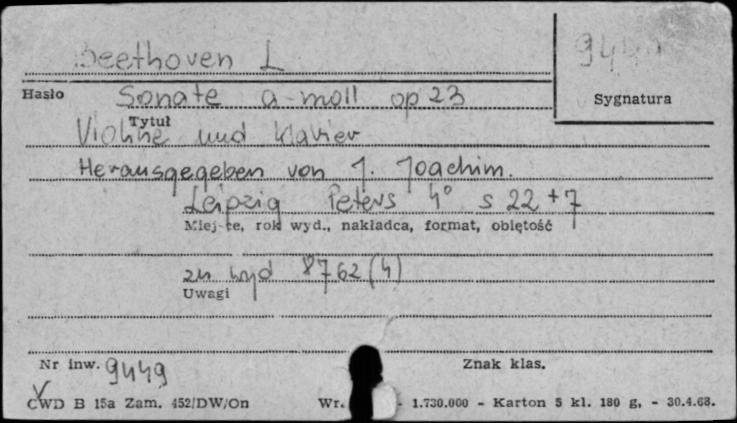 Beethoven L
Hasło Sonate a-moll op 23
Sygnatura
Tytuł
Violine und Klavier
Herausgegeben von J. Joachim.
Leipzig Peters 4° s 22 + 7
Miejsce, rok wyd., nakładca, format, objętość
zn wyd 8762 (4)
Uwagi
Nr inw. 9449 Znak klas.
CWD B 15a Zam. 452/DW/On Wr. - 1.730.000 - Karton 5 kl. 180 g, - 30.4.68.